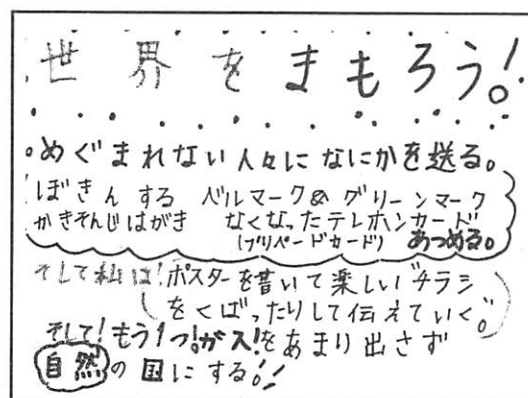 世界をまもろう!。
。めぐまれない人々になにかを送る。
ぼきんする ベルマーク&グリーンマーク
かきそんじはがき なくなったテレホンカード
(プリペードカード) あつめる。
そして私は!ポスターを書いて楽しいチラシ
をくばったりして伝えていく。
そして!もう1つ!ガス!をあまり出さず
自然の国にする!!